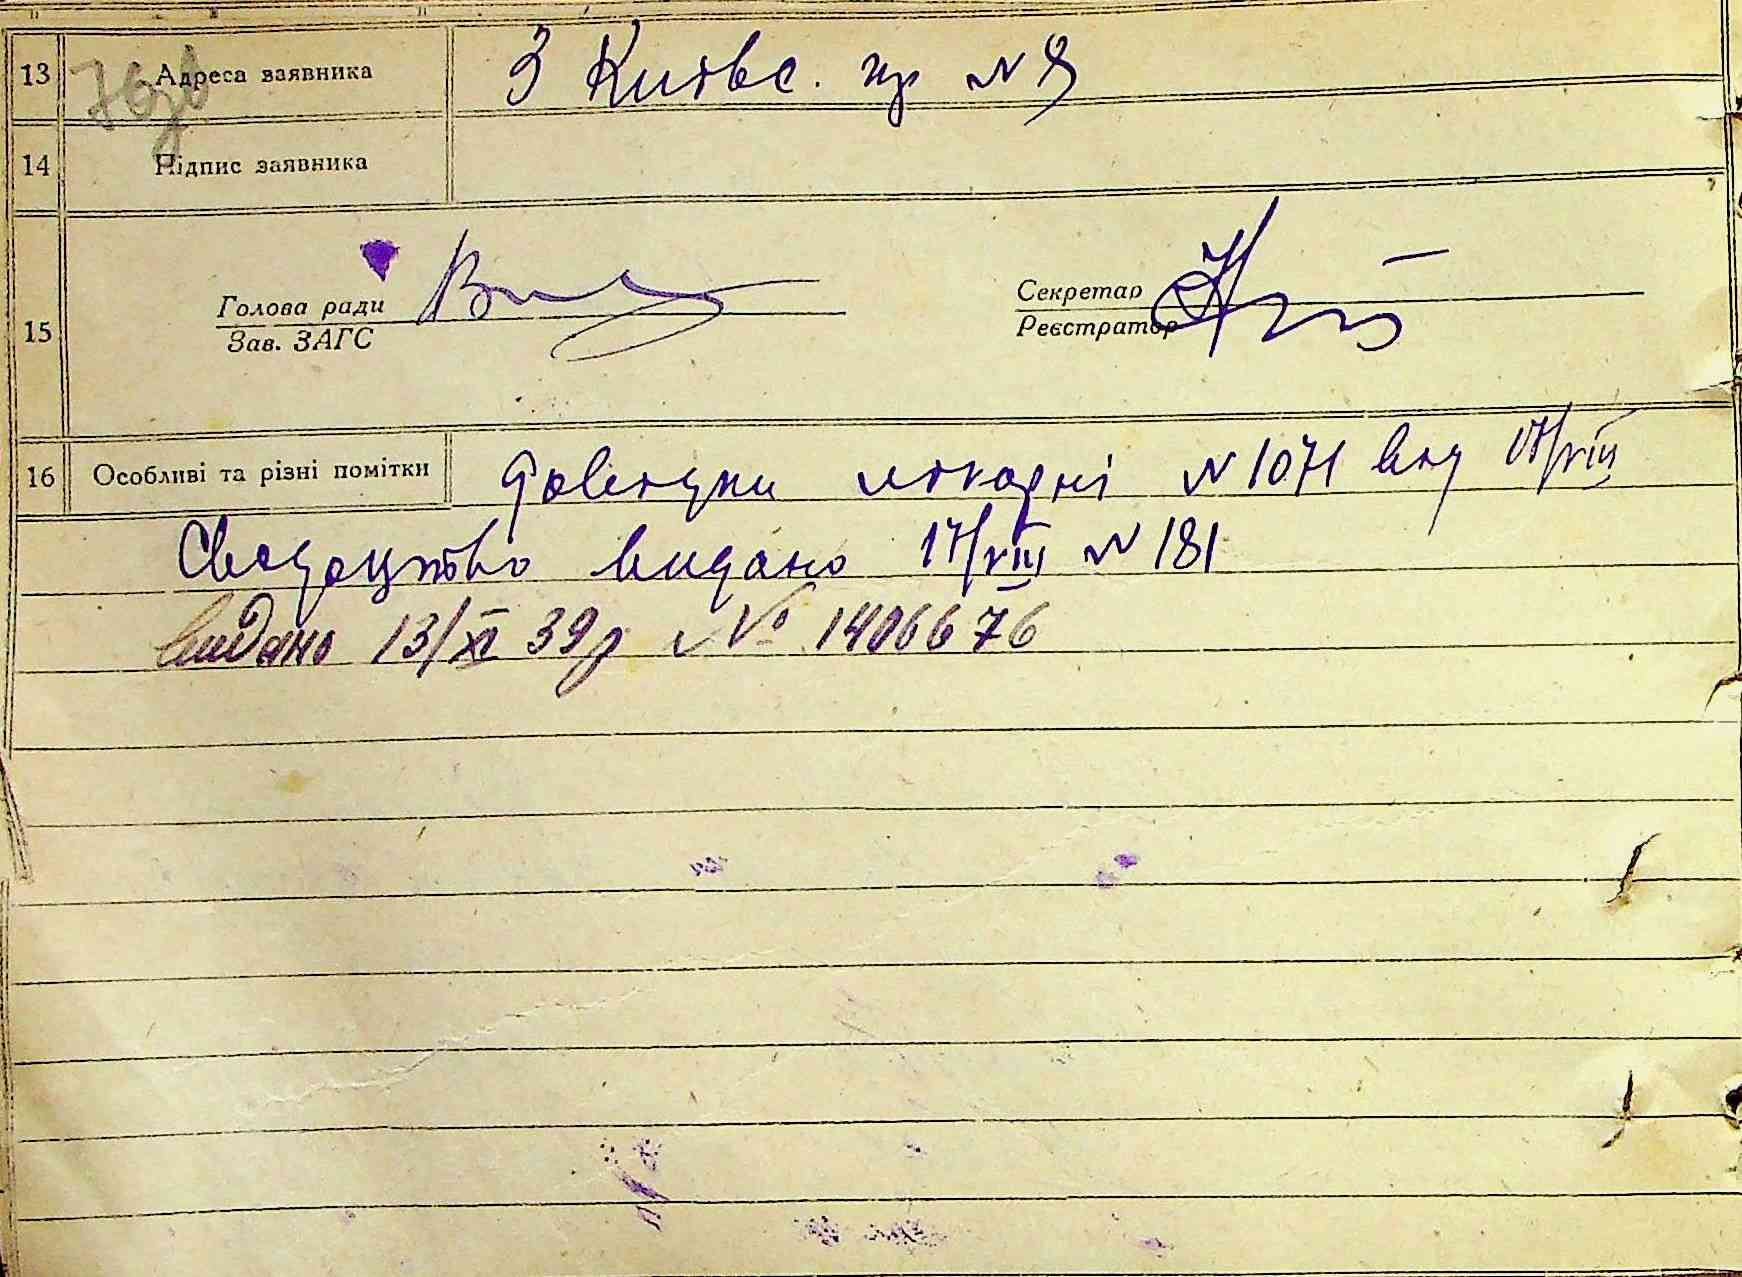 13 Адреса заявника 3 Київс. пр N 9
14 Підпис заявника
15 Голова ради Секретар
Зав. ЗАГС Реєстратор
16 Особливі та різні помітки Довідки лікарні N 1071 від 17/VIII
Свідоцтво видано 17/VIII N 181
видано 13/XI 39 р № 1406676